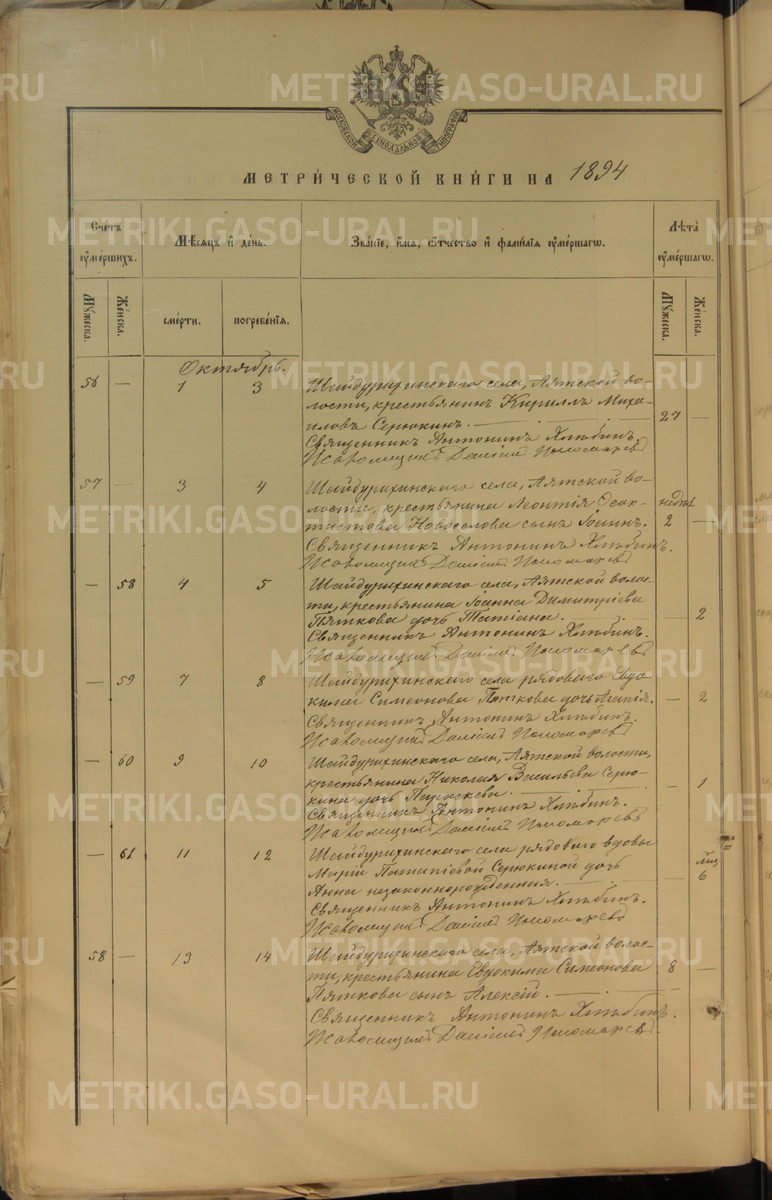 МОСКОВСКОЙ СѴНОДАЛЬНОЙ ТИПОГРАФІИ
МЕТРИ́ЧЕСКОЙ КНИ́ГИ НА 1894
Сче́тъ ѹме́ршихъ.
Мѣ́сяцъ и҆ де́нь.
Зва́нїе, и҆́мя, ѻ҆́тчество и҆ фами́лїя ѹме́ршагѡ.
Лѣ́та ѹме́ршагѡ.
Мꙋ́жеска.
Же́нска.
сме́рти.
погребе́нїя.
Мꙋ́жеска.
Же́нска.
Октябрь.
56 — 1 3 Шайдурихинскаго села, Аятской во-
лости, крестьянинъ Кириллъ Миха-
иловъ Серюкинъ. — 27 —
Священникъ Антонинъ Хлѣбинъ.
Псаломщикъ Даніилъ Пономаревъ
57 — 3 4 Шайдурихинскаго села, Аятской во-
лости, крестьянина Леонтія Ѳеок-
тистова Новоселова сынъ Іоаннъ. 2 —
Священникъ Антонинъ Хлѣбинъ.
Псаломщикъ Даніилъ Пономаревъ
— 58 4 5 Шайдурихинскаго села, Аятской волос-
ти, крестьянина Іоанна Димитріева
Пяткова дочь Татіана. — — 2
Священникъ Антонинъ Хлѣбинъ.
Псаломщикъ Даніилъ Пономаревъ
— 59 7 8 Шайдурихинскаго села рядоваго Евдо-
кима Симеонова Пяткова дочь Агапія. — 2
Священникъ Антонинъ Хлѣбинъ.
Псаломщикъ Даніилъ Пономаревъ
— 60 9 10 Шайдурихинскаго села, Аятской волости,
крестьянина Николая Васильева Серю-
кина дочь Параскева. — — 1
Священникъ Антонинъ Хлѣбинъ.
Псаломщикъ Даніилъ Пономаревъ
— 61 11 12 Шайдурихинскаго села рядоваго вдовы
Маріи Потапіевой Серюкиной дочь
Анна незаконнорожденная. — — 6
Священникъ Антонинъ Хлѣбинъ.
Псаломщикъ Даніилъ Пономаревъ
58 — 13 14 Шайдурихинскаго села, Аятской волос-
ти, крестьянина Евдокима Симеонова 8 —
Пяткова сынъ Алексій. —
Священникъ Антонинъ Хлѣбинъ.
Псаломщикъ Даніилъ Пономаревъ
METRIKI.GASO-URAL.RU